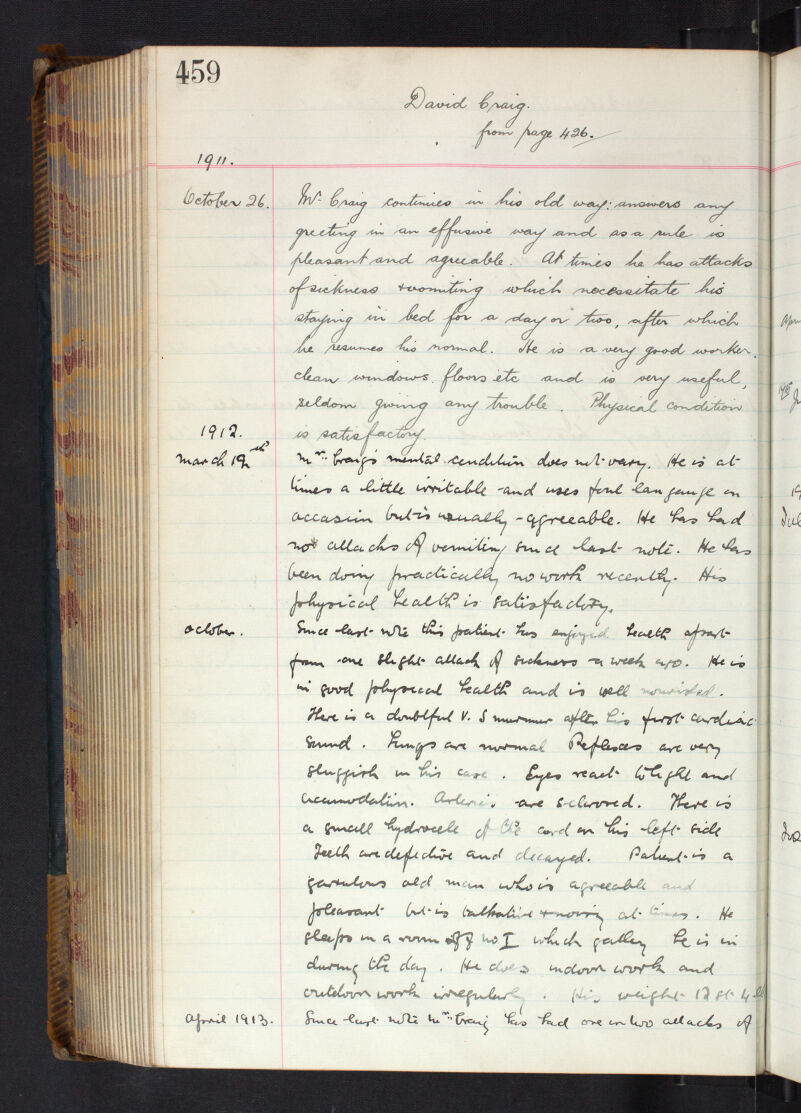 459
David Craig.
from page 426.
1911.
October 26. Mr. Craig continues in his old way: answers any
greeting in an effusive way and as a rule is
pleasant and agreeable. At times he has attacks
of sickness & vomiting which necessitate his
staying in bed for a day or two, after which
he resumes his normal. He is a very good worker.
clean windows floors etc and is very useful,
seldom giving any trouble. Physical condition
1912. is satisfactory.
March 19th Mr. Craig's mental condition does not vary. He is at
times a little irritable and uses foul langauge on
occasion but is usually agreeable. He has had
no attacks of vomiting since last note. He has
been doing practically no work recently. His
physical health is satisfactory.
October. Since last note this patient has enjoyed health apart
from one slight attack of sickness a week ago. He is
in good physical health and is well nourished.
There is a doubtful V. S murmur after his first cardiac
sound. Lungs are normal Reflexes are very
sluggish in his case. Eyes react to light and
accomodation. Arteries are sclerosed. There is
a small hydrocele of the cord on his left side
Teeth are defective and decayed. Patient is a
garrulous old man who is agreeable and
pleasant but is talkative & noisy at times. He
sleeps in a room off no I which gallery he is in
during the day. He does indoor work and
outdoor work irregularly. His weight 12 st 4
April 1913. Since last note Mr. Craig has had one or two attacks of